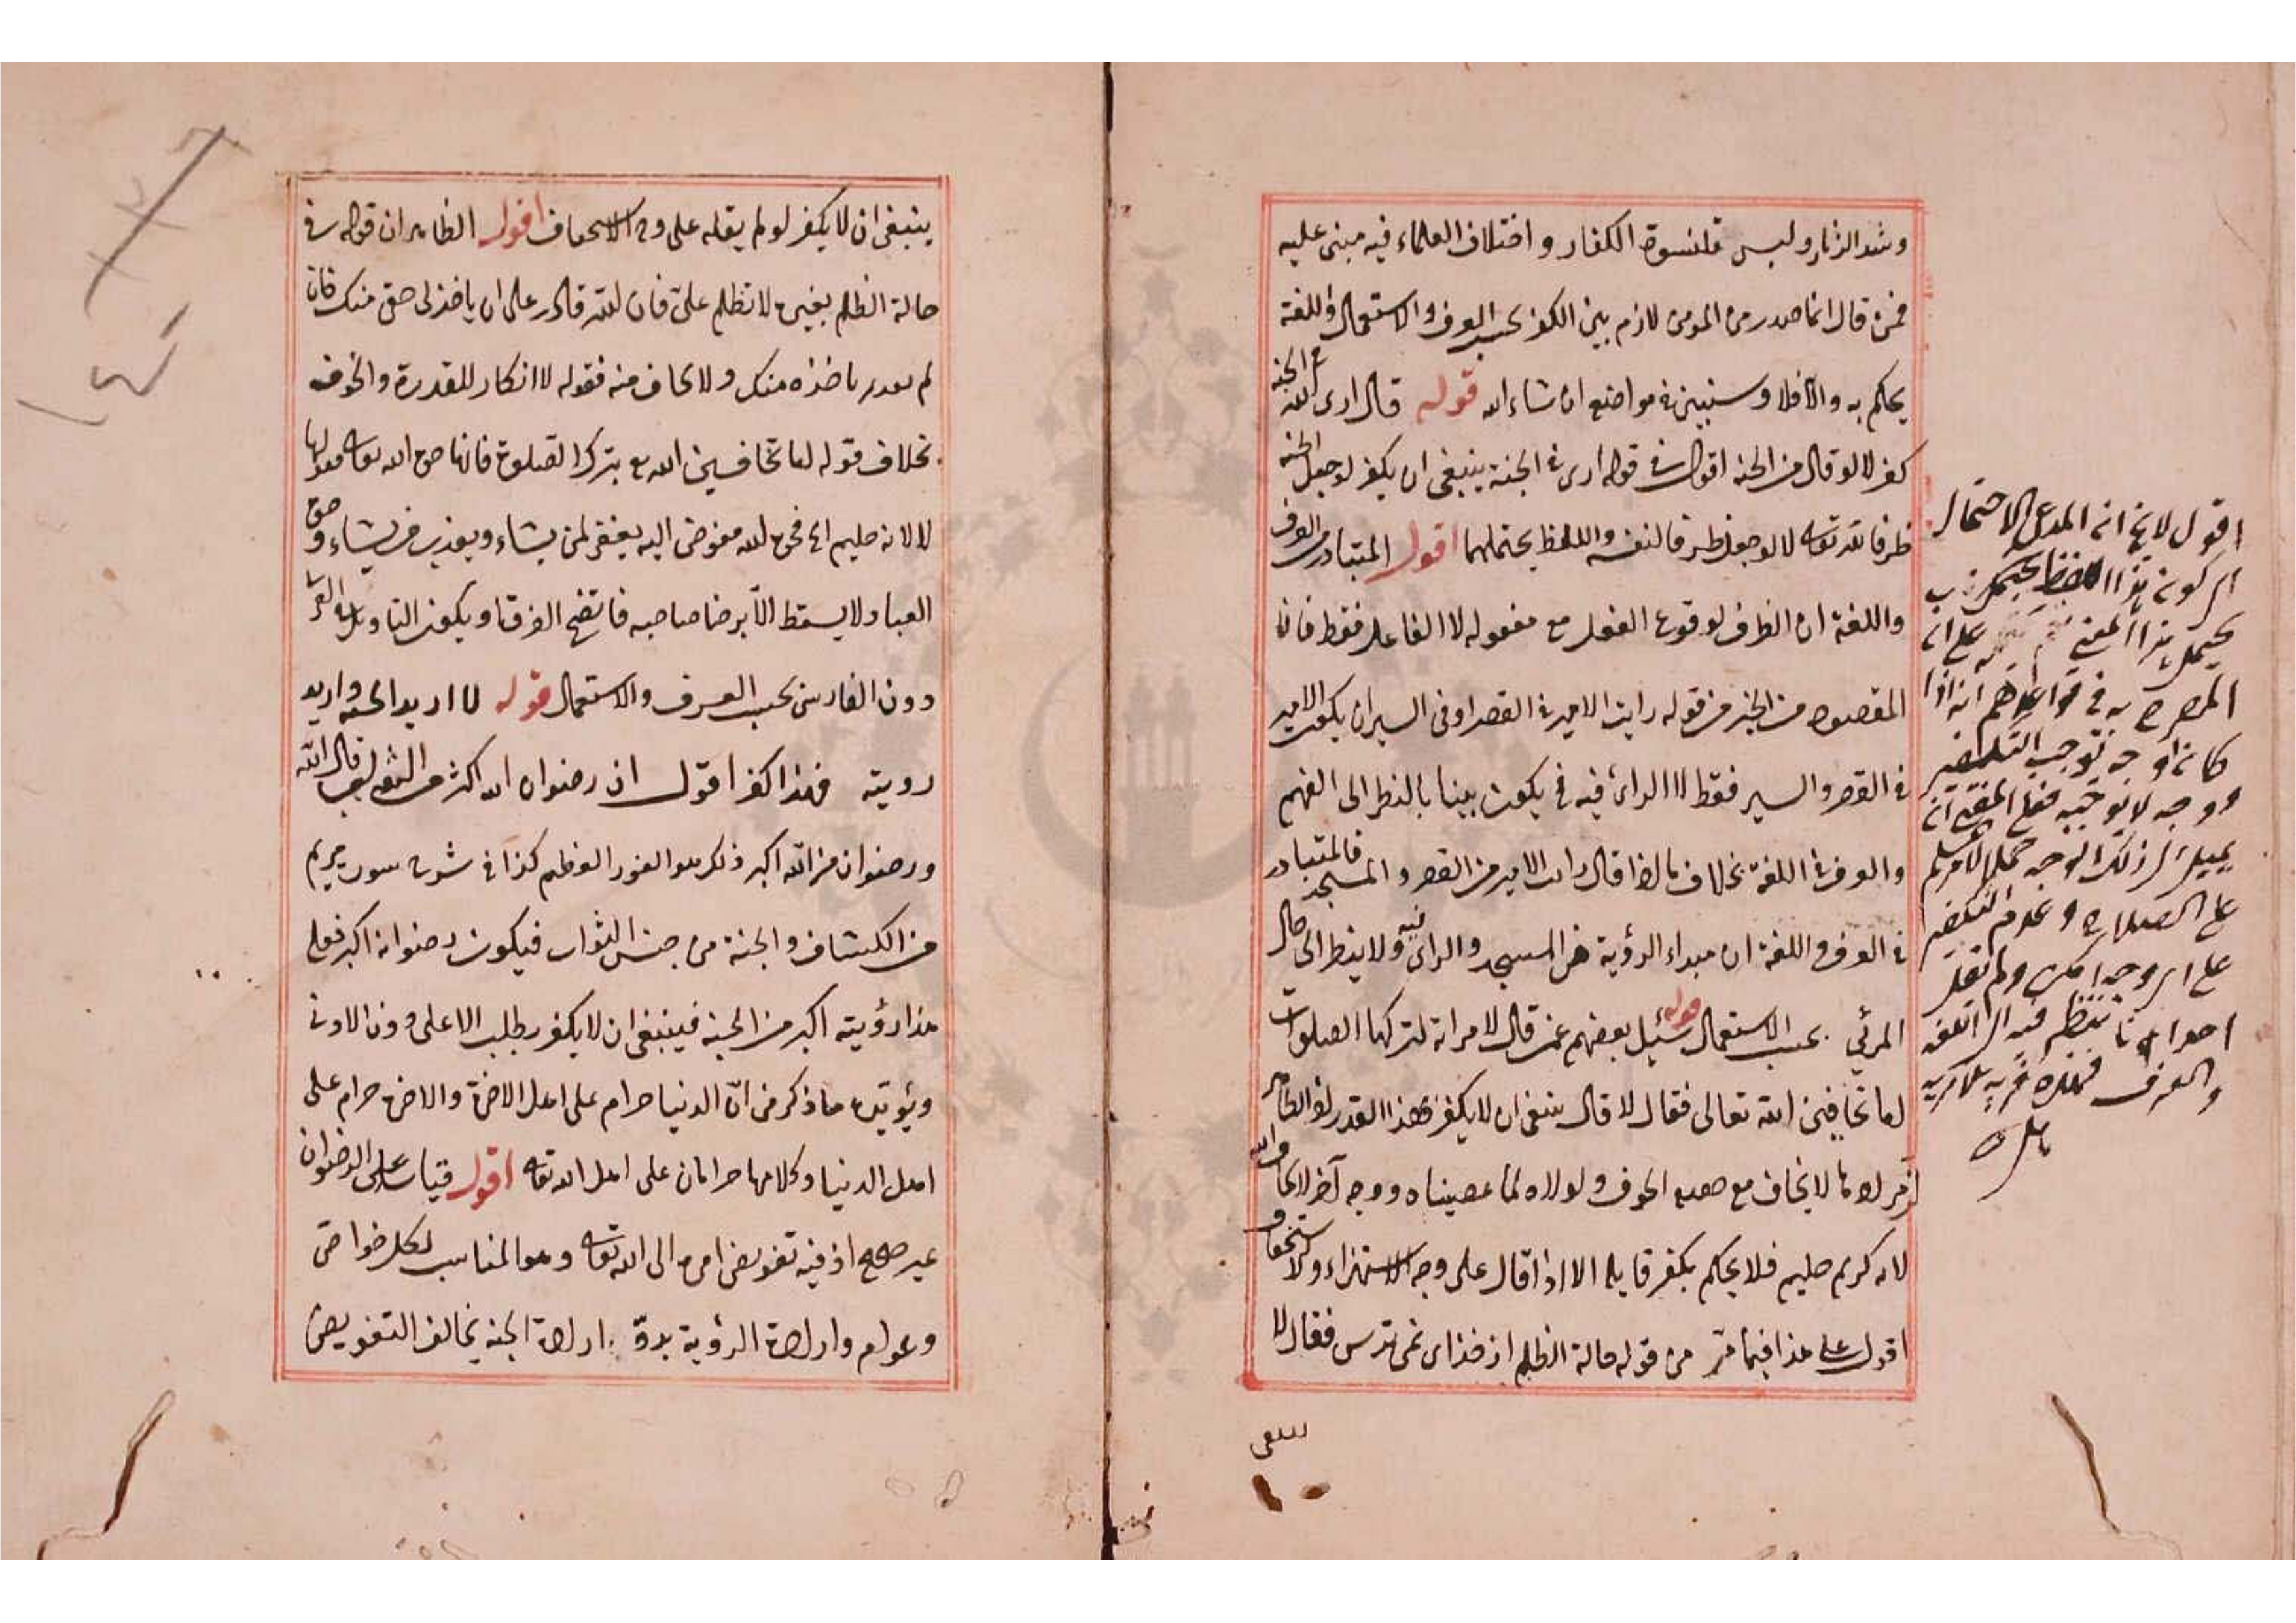 وشد الزنار ولبس قلنسوة الكفار واختلاف العلماء فيه مبنى عليه
فمن قال انما صدر من المومن لازم بين الكفر بحسب العرف والاستعمال واللغة
يحكم به والا فلا وسنبين في مواضع ان شاء الله قوله قال ارى الله في الجنة
كفر لا لو قال من الجنة اقول في قوله ارى في الجنة ينبغى ان يكفر لو جعل الجنة
ظرفا لله تعه لا لو جعل ظرفا لنفسه واللفظ يحتملهما اقول المتبادر من العرف
واللغة ان الظرف لوقوع الفعل مع مفعوله لا الفاعل فقط فان
المقصود من الخبر من قوله رايت الامير في القصر او في السير ان يكون الامير
في القصر والسير فقط لا الرائى فيه في يكون بينا بالنظر الى الفهم
والعرف في اللغة بخلاف ما اذا قال رايت الامير من القصر والمسجد فالمتبادر
في العرف واللغة ان مبداء الرؤية من المسجد والرائى فيه ولا ينظر الى حال
المرئي بحسب الاستعمال قوله سئل بعضهم عمن قال لامراته لتركها الصلوات
اما تخافين الله تعالى فقال لا قال ينبغى ان لا يكفر فهذا القدر اذ الظاهر
لانه كريم حليم فلا يحكم بكفر قايله الا اذا قال على وجه الاستهزاء والاستخفاف
اقول على هذا فيما مر من قوله حالة الظلم از خداى نمى ترس فقال لا
اقول لا يخ انه المدعى الاحتمال
اى كونه هذا اللفظ يحتمل
يحتمل هذا المعنى على ان
المصرح به في قواعدهم انه اذا
كان وجه توجب التكفير
ووجه لا يوجبه فعلى المفتى ان
يميل الى ذلك الوجه حملا لامر المسلم
على الصلاح وعدم التكفير
ينبغى
ينبغى ان لا يكفر لو لم يقله على وجه الاستخفاف اقول الظاهر ان قوله في
حالة الظلم بغيره لا تظلم علىّ فان الله قادر على ان ياخذ لى حق منك فان
لم يقدر ياخذه منك ولا يخاف منه فقوله لا انكار للقدرة والخوف
بخلاف قوله اما تخافين الله مع بترك الصلوة فانها حق الله تعه فقولها
لا لانه حليم اى فحق الله مفوض اليه يغفر لمن يشاء ويعذب من يشاء وحق
العباد لا يسقط الا برضا صاحبه فاتضح الفرقان ويكون التاويل
دون الفارسى بحسب العرف والاستعمال قوله لا اريد الجنة واريد
رويته فهذا كفر اقول ان رضوان الله اكثر من الثواب قال الله
ورضوان من الله اكبر ذلك هو الفوز العظيم كذا في سورة مريم
من الكشاف والجنة من جنس الثواب فيكون رضوانه اكبر فعلى
هذا رؤيته اكبر من الجنة فينبغى ان لا يكفر بطلب الاعلى دون الادنى
ويؤيده ما ذكر من ان الدنيا حرام على اهل الاخرة والاخرة حرام على
اهل الدنيا وكلاهما حرامان على اهل الله تعه اقول قياسه على الرضوان
غير صحيح اذ فيه تفويض امره الى الله تعه وهو المناسب لكل خواص
وعوام وارادة الرؤية بدون ارادة الجنة يخالف التفويض